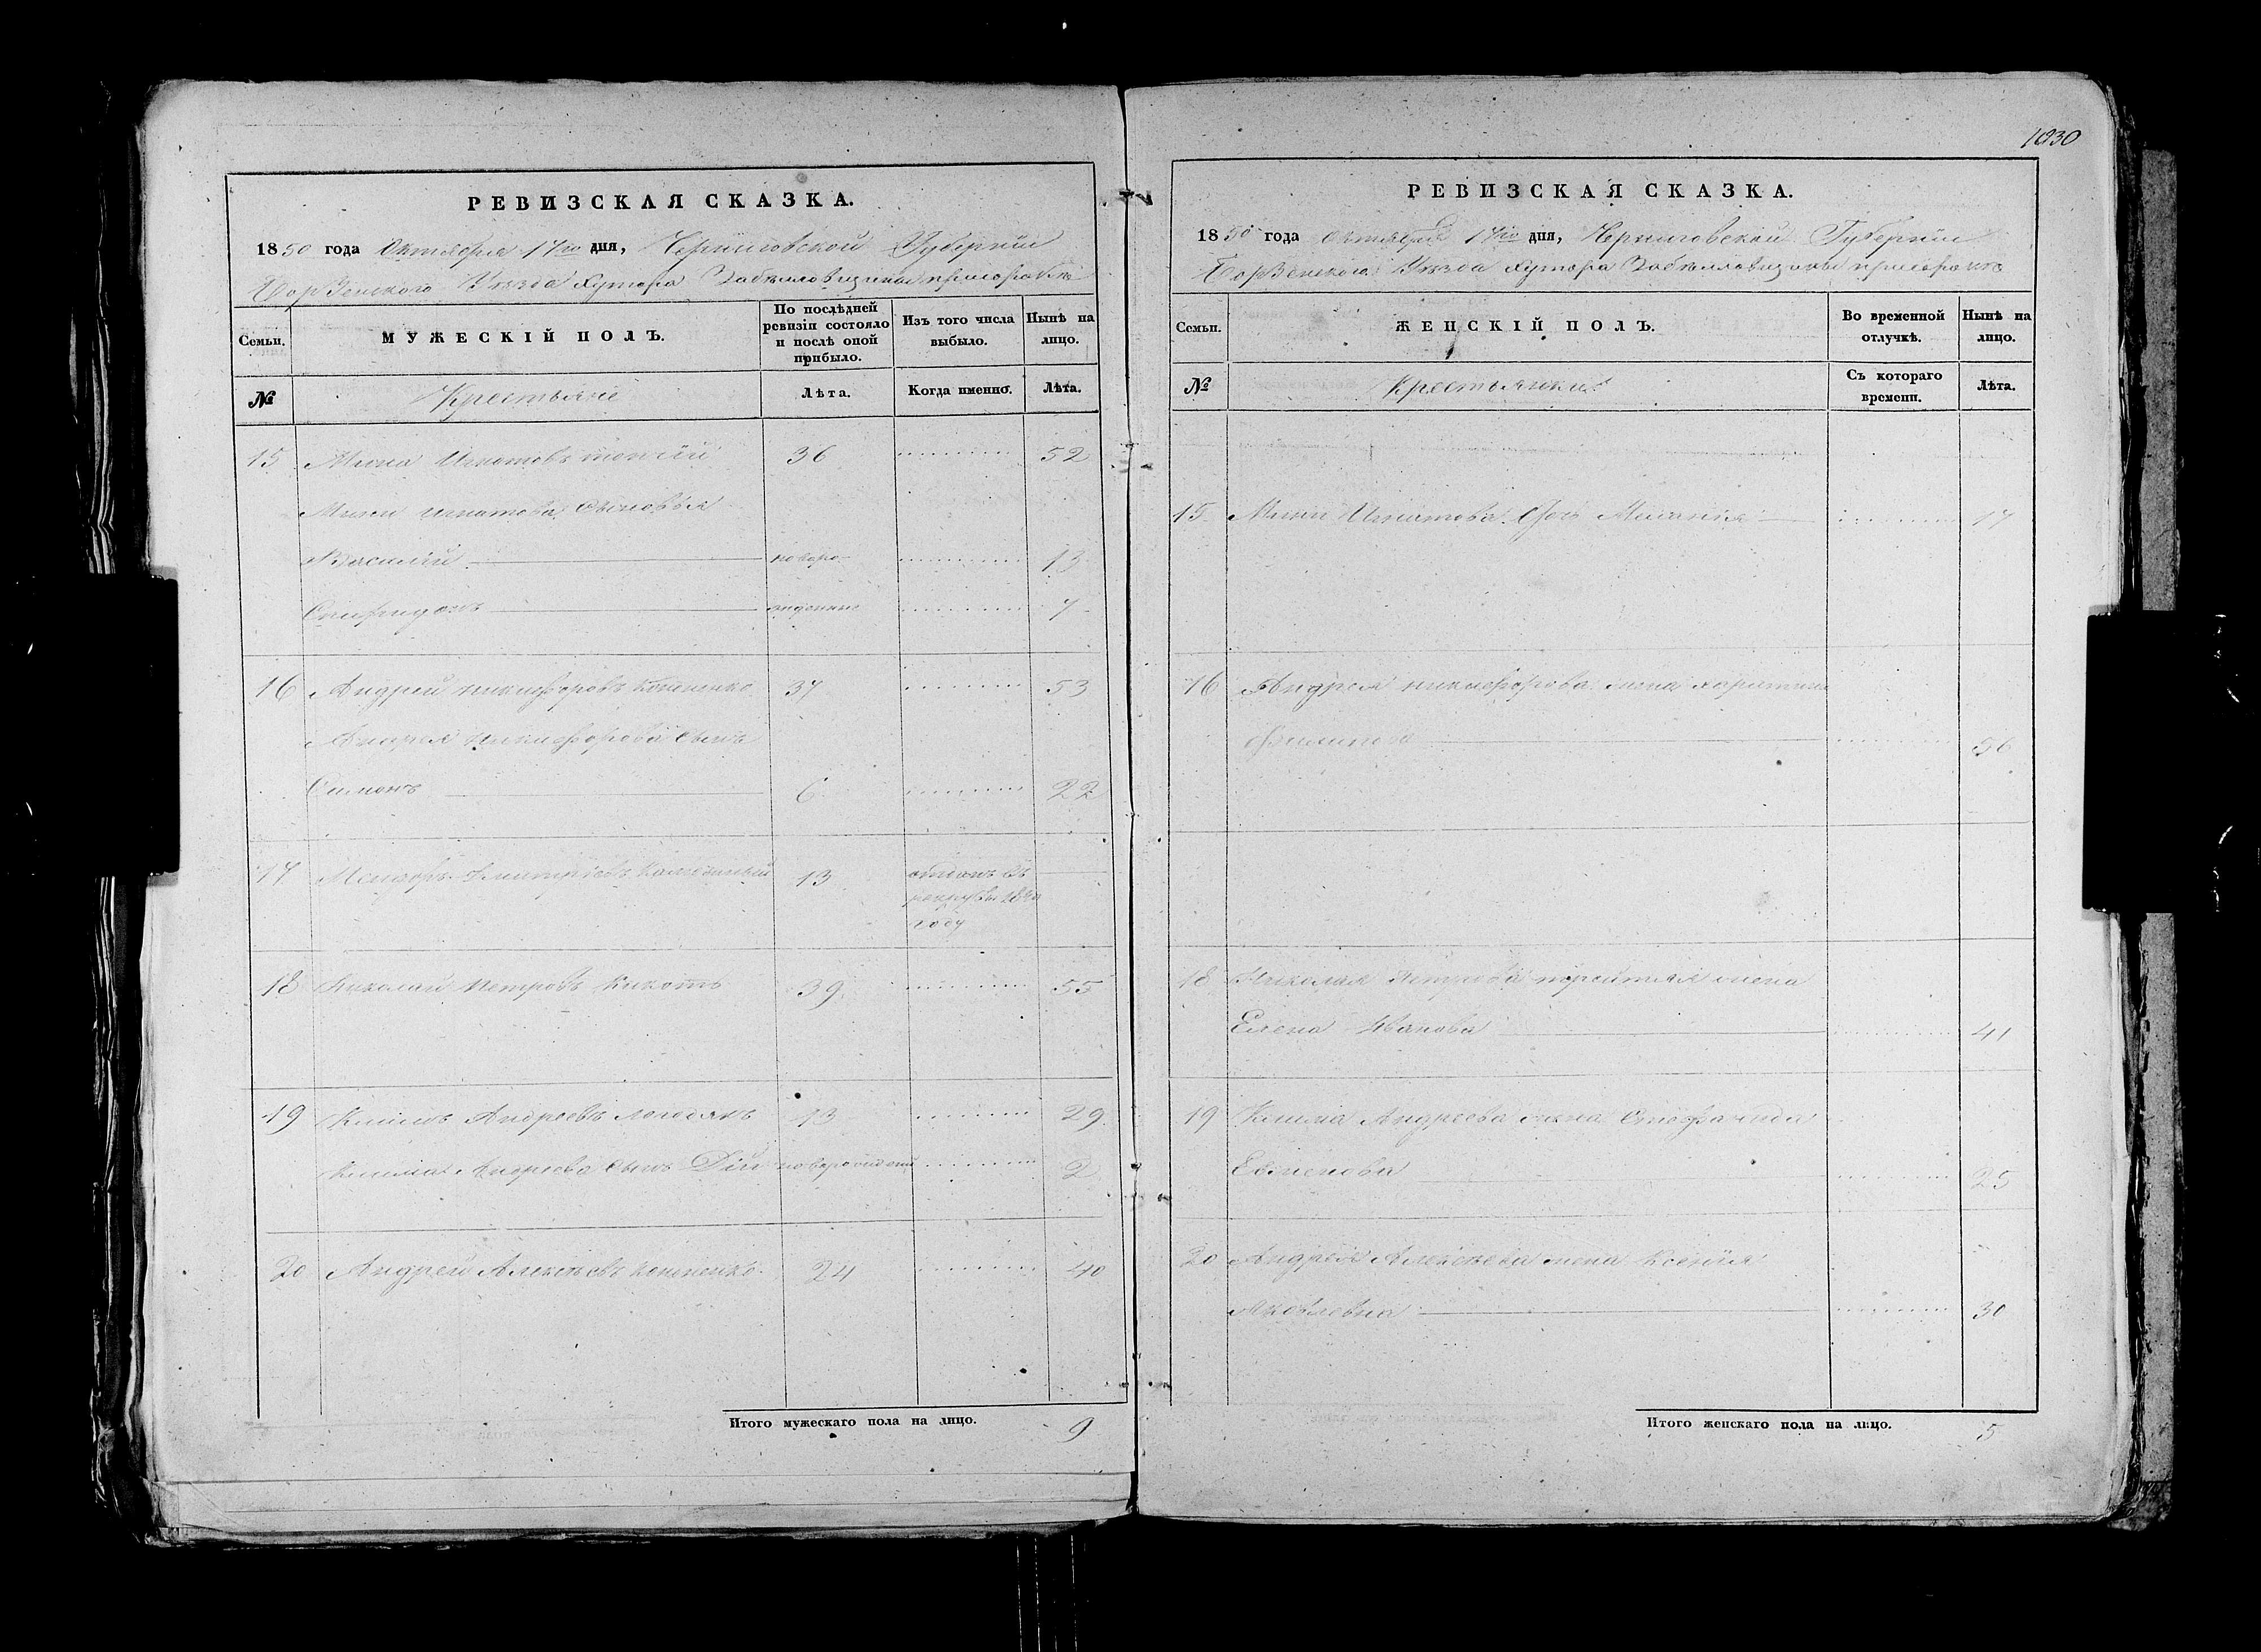 РЕВИЗСКАЯ СКАЗКА.
1850 года Октября 17го дня, Черниговской Губерніи
Борзенского Уезда Хутора
Семьи.
МУЖЕСКІЙ ПОЛЪ.
По послѣдней ревизіи состояло и послѣ оной прибыло.
Изъ того числа выбыло.
Нынѣ на лицо.
№
Крестьяне
Лѣта.
Когда именно.
Лѣта.
15 Мина Игнатовъ 36 52
Мины Игнатова сыновья
Василій новоро 13
Спиридонъ жденные 7
16 Андрей Никифоровъ Кононенко 37 53
Андрея Никифорова сынъ
Симонъ 6 22
17 Дмитріевъ 13 отданъ въ
рекруты
году
18 Николай Петровъ Кикоть 39 55
19 Климъ Андреевъ 13 29
Клима Андреева сынъ новорожденный 2
20 Андрей Алексѣевъ Кононенко 24 40
Итого мужескаго пола на лицо. 9
1030
РЕВИЗСКАЯ СКАЗКА.
1850 года Октября 17го дня, Черниговской Губерніи
Борзенского Уезда Хутора
Семьи.
ЖЕНСКІЙ ПОЛЪ.
Во временной отлучкѣ.
Нынѣ на лицо.
№
Крестьянки
Съ котораго времени.
Лѣта.
15 Мины Игнатова дочь 17
16 Андрея Никифорова жена
56
18 Николая Петрова жена
Елена Иванова 41
19 Клима Андреева жена Стефанида
25
20 Андрея Алексѣева жена Ксенія
Яковлевна 30
Итого женскаго пола на лицо. 5